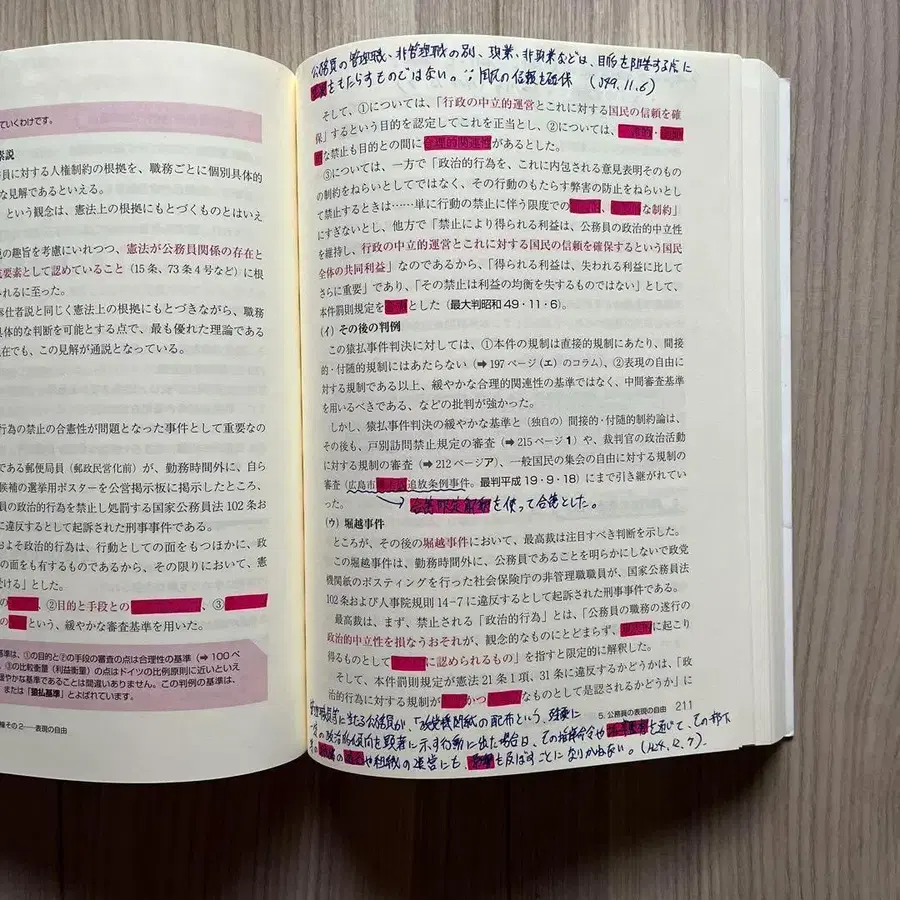 ていくわけです。
素説
員に対する人権制約の根拠を、職務ごとに個別具体的
な見解であるといえる。
という観念は、憲法上の根拠にもとづくものとはいえ
説の趣旨を考慮にいれつつ、憲法が公務員関係の存在と
要素として認めていること（15条、73条4号など）に根
れるに至った。
奉仕者説と同じく憲法上の根拠にもとづきながら、職務
具体的な判断を可能とする点で、最も優れた理論である
在でも、この見解が通説となっている。
行為の禁止の合憲性が問題となった事件として重要なの
である郵便局員（郵政民営化前）が、勤務時間外に、自ら
候補の選挙用ポスターを公営掲示板に掲示したところ、
員の政治的行為を禁止し処罰する国家公務員法102条お
に違反するとして起訴された刑事事件である。
およそ政治的行為は、行動としての面をもつほかに、政
の面も有するものであるから、その限りにおいて、憲
受ける」とした。
の、②目的と手段との、③
のという、緩やかな審査基準を用いた。
基準は、①の目的と②の手段の審査の点は合理性の基準（➡100ペ
、③の比較衡量（利益衡量）の点はドイツの比例原則に近いといえ
緩やかな基準であることは間違いありません。この判例の基準は、
または「猿払基準」とよばれています。
障その2——表現の自由
公務員の管理職、非管理職の別、現業、非現業などは、目的を阻害する点に
をもたらすものではない。∵国民の信頼を確保 （S49.11.6）
そして、①については、「行政の中立的運営とこれに対する国民の信頼を確
保」するという目的を認定してこれを正当とし、②については、
な禁止も目的との間に合理的関連性があるとした。
③については、一方で「政治的行為を、これに内包される意見表明そのもの
の制約をねらいとしてではなく、その行動のもたらす弊害の防止をねらいとし
て禁止するときは……単に行動の禁止に伴う限度での、な制約」
にすぎないとし、他方で「禁止により得られる利益は、公務員の政治的中立性
を維持し、行政の中立的運営とこれに対する国民の信頼を確保するという国民
全体の共同利益」なのであるから、「得られる利益は、失われる利益に比して
さらに重要」であり、「その禁止は利益の均衡を失するものではない」として、
本件罰則規定をとした（最大判昭和49・11・6）。
（イ）その後の判例
この猿払事件判決に対しては、①本件の規制は直接的規制にあたり、間接
的・付随的規制にはあたらない（➡197ページ（エ）のコラム）、②表現の自由に
対する規制である以上、緩やかな合理的関連性の基準ではなく、中間審査基準
を用いるべきである、などの批判が強かった。
しかし、猿払事件判決の緩やかな基準と（独自の）間接的・付随的制約論は、
その後も、戸別訪問禁止規定の審査（➡215ページ1）や、裁判官の政治活動
に対する規制の審査（➡212ページア）、一般国民の集会の自由に対する規制の
審査（広島市追放条例事件。最判平成19・9・18）にまで引き継がれてい
った。
合憲限定解釈を使って合憲とした。
（ウ）堀越事件
ところが、その後の堀越事件において、最高裁は注目すべき判断を示した。
この堀越事件は、勤務時間外に、公務員であることを明らかにしないで政党
機関紙のポスティングを行った社会保険庁の非管理職職員が、国家公務員法
102条および人事院規則14-7に違反するとして起訴された刑事事件である。
最高裁は、まず、禁止される「政治的行為」とは、「公務員の職務の遂行の
政治的中立性を損なうおそれが、観念的なものにとどまらず、に起こり
得るものとしてに認められるもの」を指すと限定的に解釈した。
そして、本件罰則規定が憲法21条1項、31条に違反するかどうかは、「政
治的行為に対する規制がかつなものとして是認されるかどうか」に
5. 公務員の表現の自由 211
管理職員等に当たる公務員が、「政党機関紙の配布という、強度に
の政治的傾向を顕著に示す行動に出た場合は、その指揮命令やを通じて、その部下
等のや組織の運営にも、を及ぼすことになりかねない。（H24.12.7）